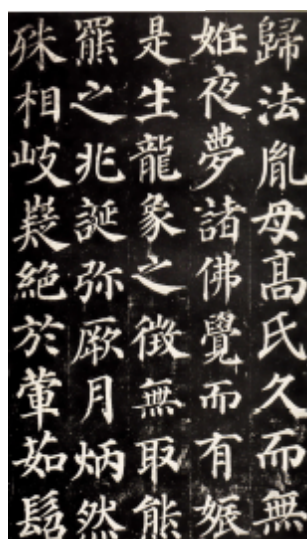 歸法胤母髙氏久而無
姙夜夢諸佛覺而有娠
是生龍象之徵無取熊
羆之兆誕弥厥月炳然
殊相岐嶷絶於葷茹髫